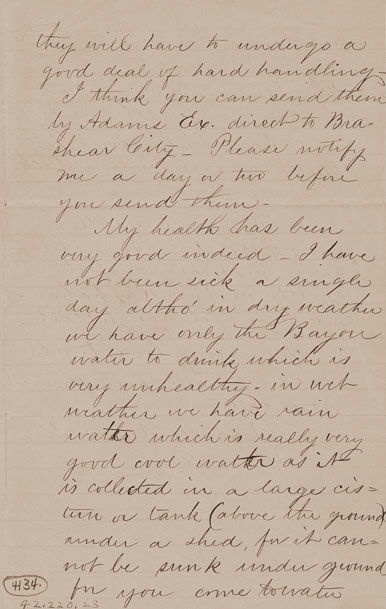 they will have to undergo a
good deal of hard handling -
I think you can send them
by Adams Ex. direct to Bra-
shear City - Please notify
me a day or two before
you send them -
My health has been
very good indeed - I have
not been sick a single
day altho' in dry weather
we have only the Bayou
water to drink which is
very unhealthy - in wet
weather we have rain
water which is really very
good cool water as it
is collected in a large cis=
tern or tank (above the ground
under a shed, for it can=
not be sunk under ground
for you come to water
434.
42.220.23